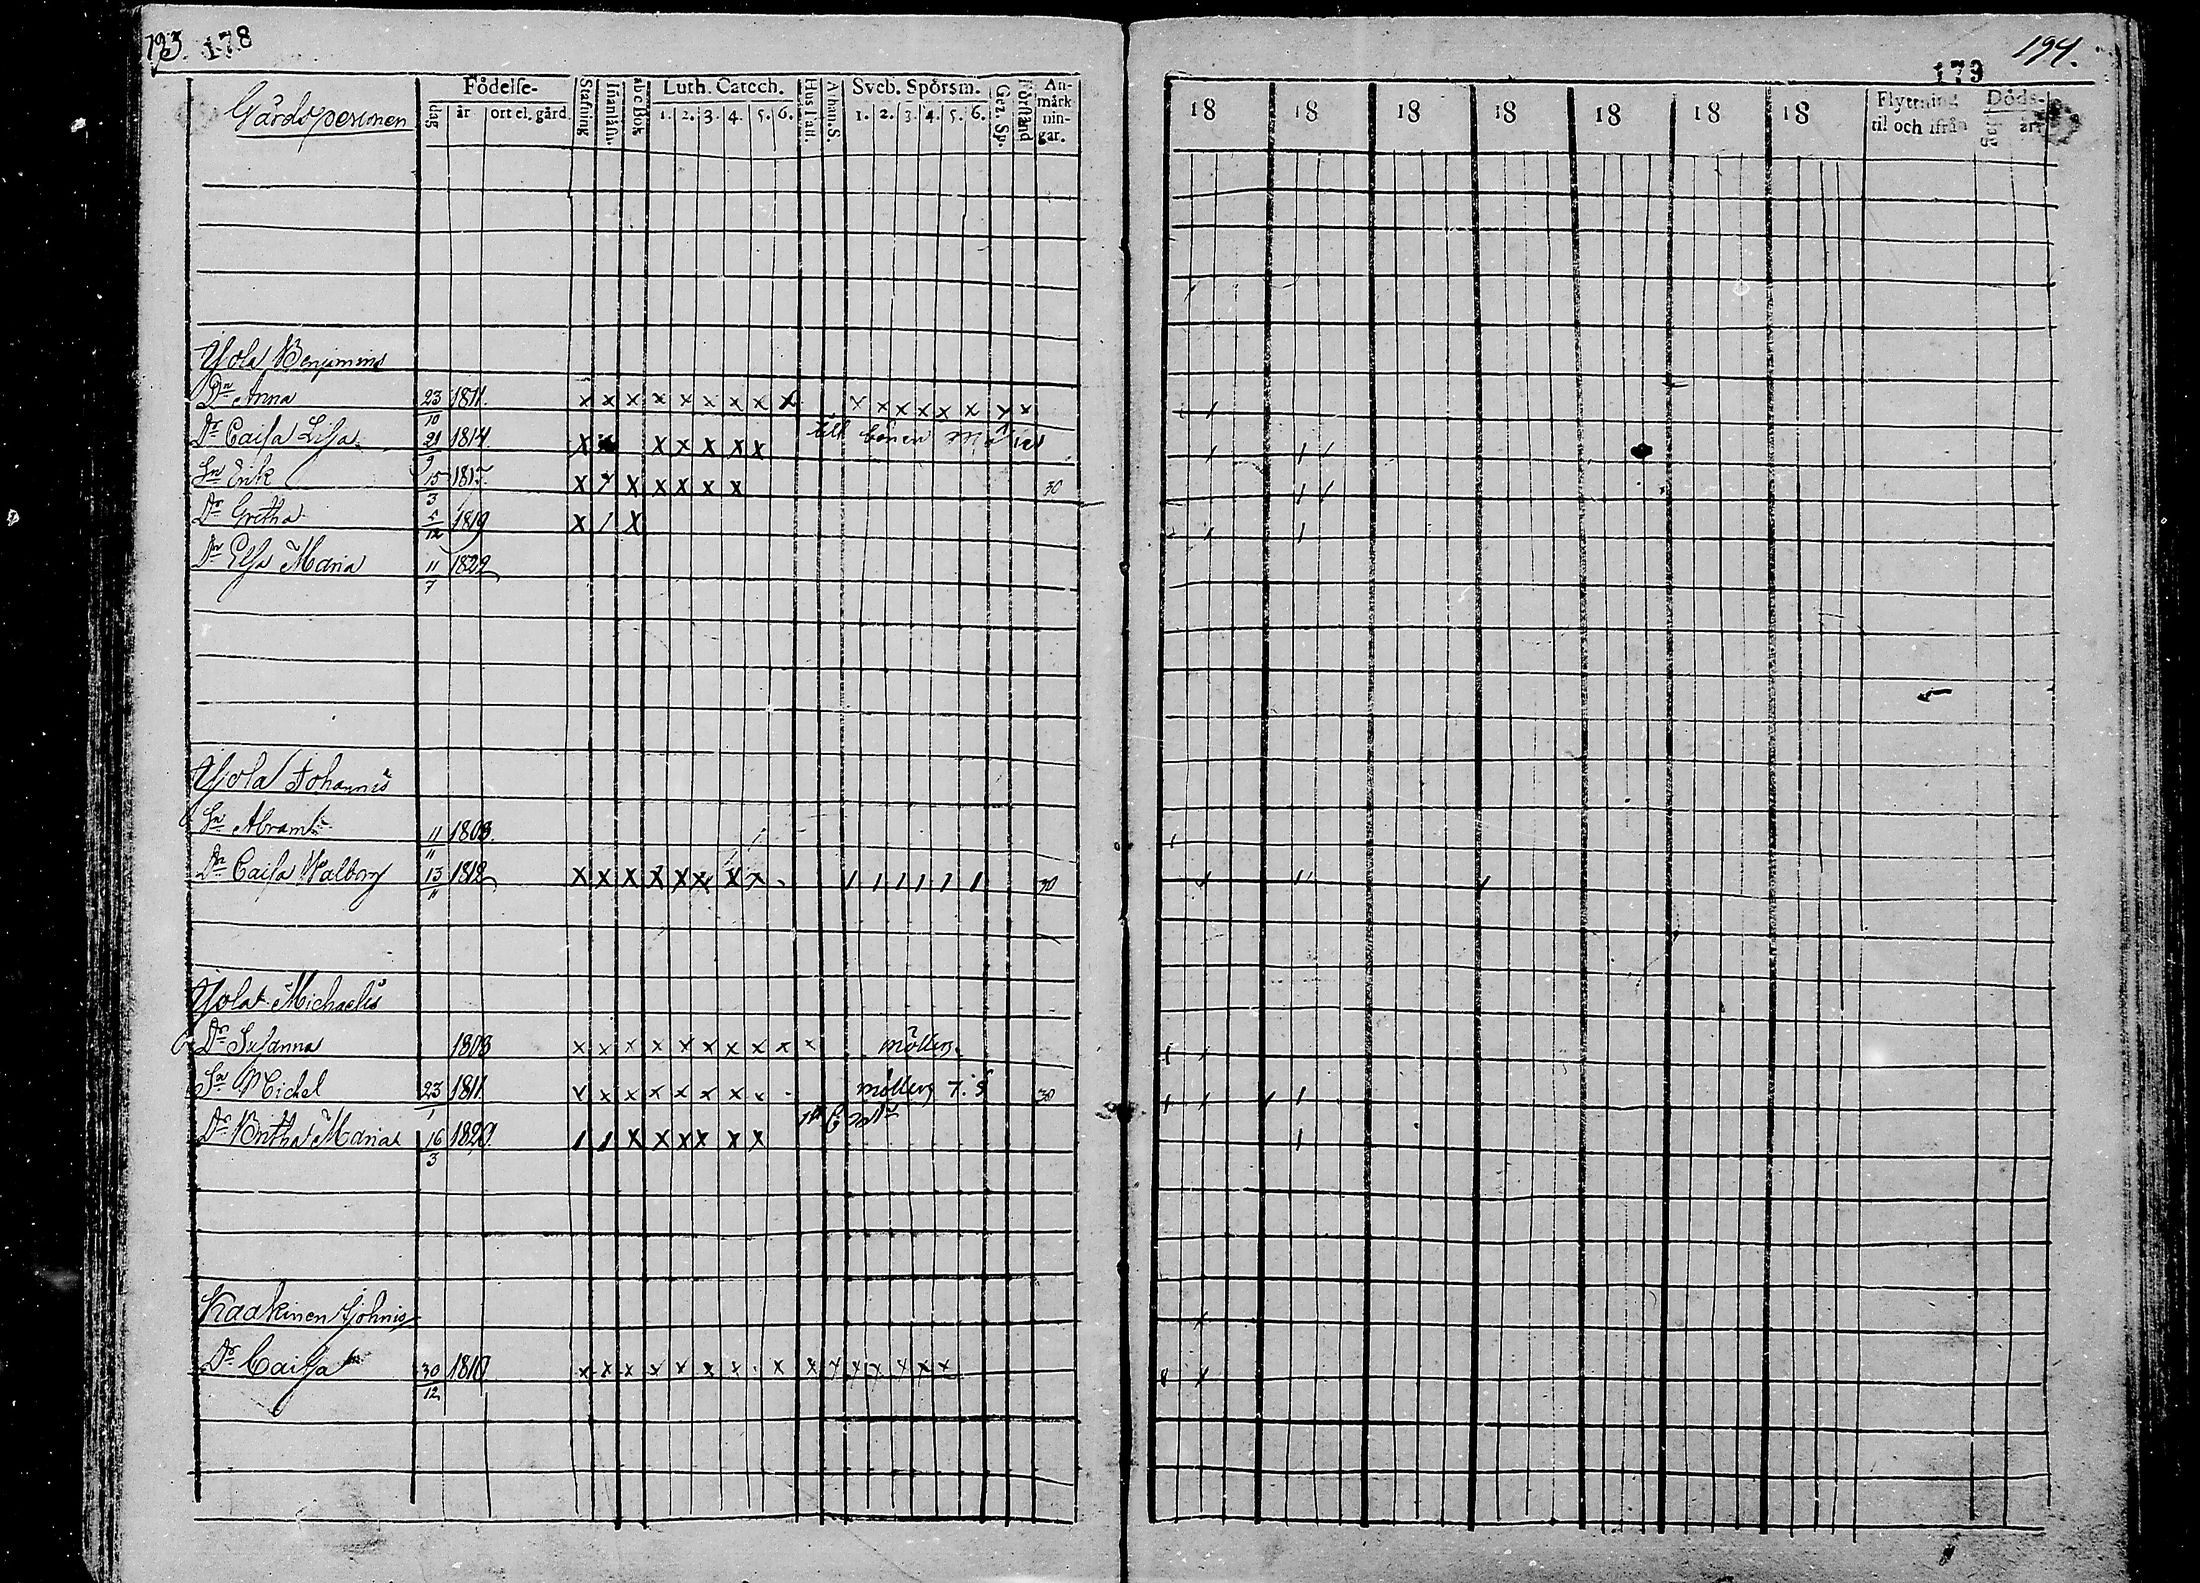 193. 178
Gårdspersonen
Födelse-
dag år ort el. gård.
Stafning
Innanläsn.
abc Bok
Luth. Catech.
1. 2. 3. 4. 5. 6.
Hus Tafl.
Athan. S.
Sveb. Spörsm.
1. 2. 3. 4. 5. 6.
Gez. Sp.
Förstånd
An-
märk
nin-
gar.
Yola Benjamins
Dr Anna 23/10 1811. x x x x x x x x x x x x x x x x x
Dr Caisa Lisa 21/9 1814. x x x x x x x
Sn Erik 15/3 1817 x x x x x x x 30
Dr Gretha 5/12 1819 x 1 x
Dr Elsa Maria 11/7 1822
Yola Johannis
Sn Abram 11/11 1808.
Dr Caisa Walborg 13/11 1812 x x x x x x x x 1 1 1 1 1 1 30
Yola Michaelis
Dr Susanna 1808 x x x x x x x x x x
Sn Michel 23/1 1811 x x x x x x x x 30
Dr Britha Maria 16/3 1820. 1 1 x x x x x x
Kaakinen Johnis
Dr Caisa 30/12 1810 x x x x x x x x x x x x x x x
194.
179
18 18 18 18 18 18 18
Flyttning
til och ifrån
Döds-
dag år